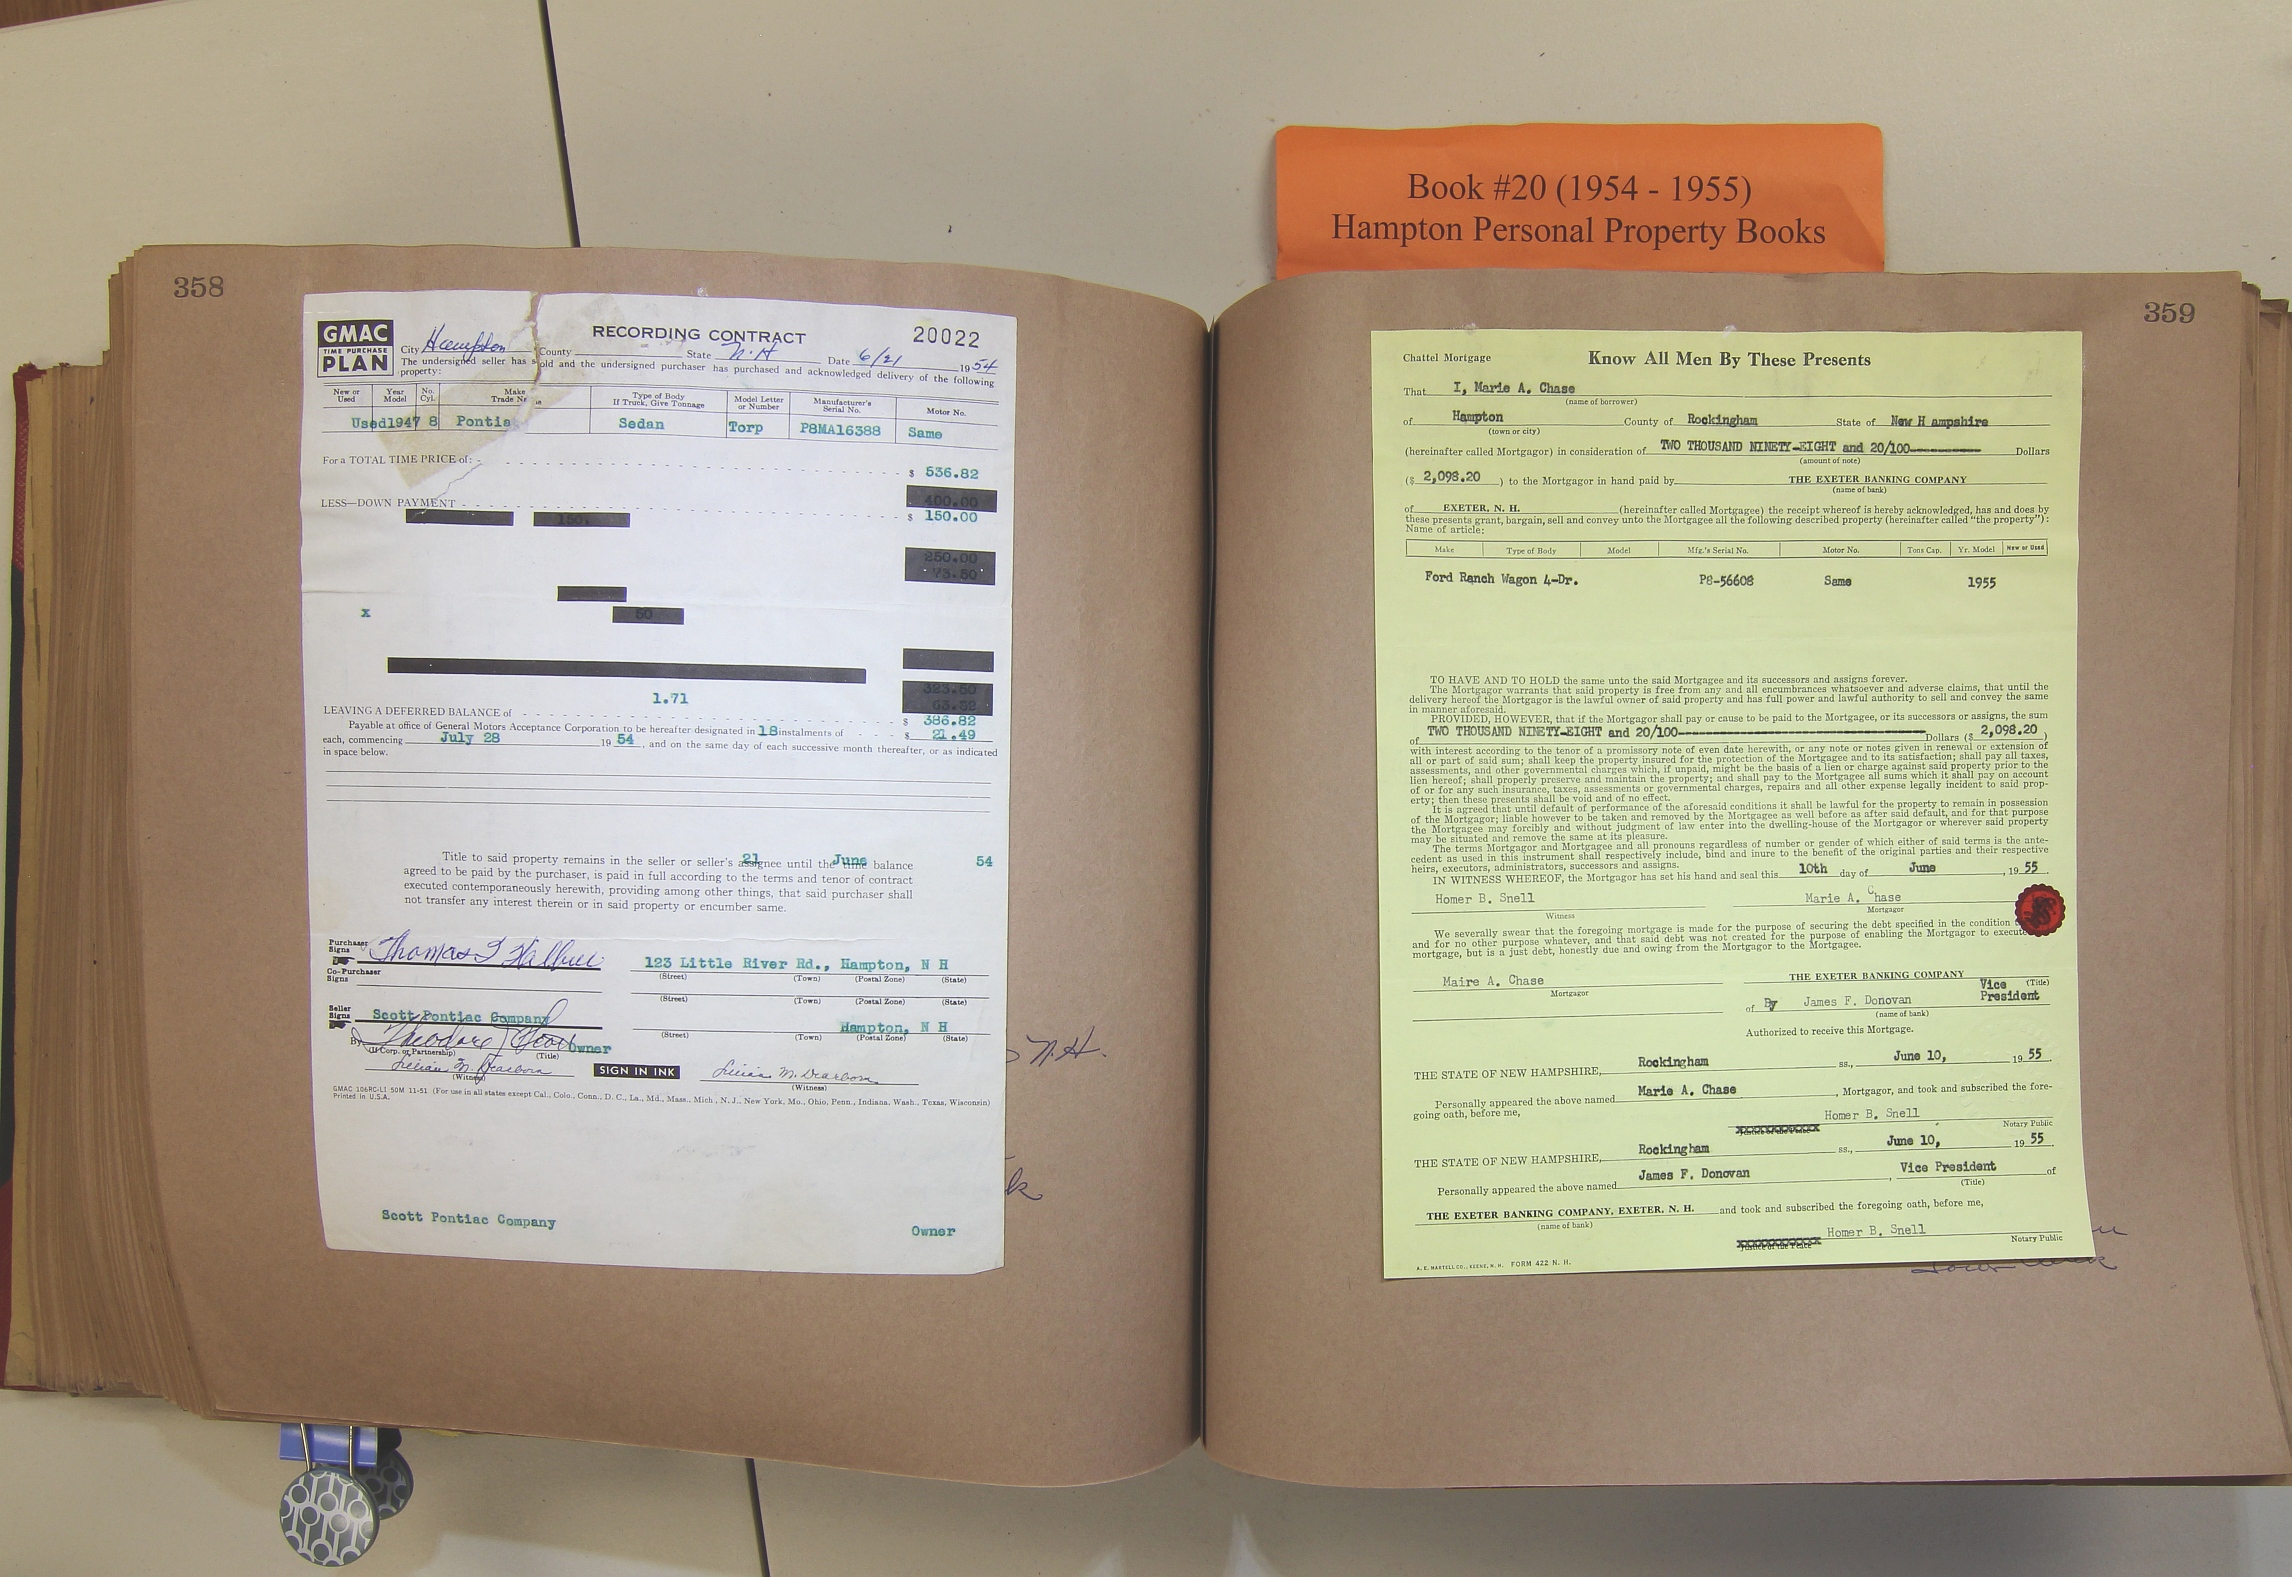 Book #20 (1954 - 1955)
Hampton Personal Property Books
358
GMAC
TIME PURCHASE
PLAN
RECORDING CONTRACT
20022
City Hampton County State N.H Date 6/21 1954
The undersigned seller has sold and the undersigned purchaser has purchased and acknowledged delivery of the following
property:
New or Used Year Model No. Cyl. Make Trade Type of Body If Truck, Give Tonnage Model Letter or Number Manufacturer's Serial No. Motor No.
Used 1947 8 Pontia Sedan Torp P8MA16388 Same
For a TOTAL TIME PRICE of: - $ 536.82
400.00
LESS—DOWN PAYMENT $ 150.00
150.
250.00
73.50
x
50
323.50
63.32
1.71
LEAVING A DEFERRED BALANCE of $ 386.82
Payable at office of General Motors Acceptance Corporation to be hereafter designated in 18 instalments of $ 21.49
each, commencing July 28 19 54, and on the same day of each successive month thereafter, or as indicated
in space below.
21 June 54
Title to said property remains in the seller or seller's assignee until the time balance
agreed to be paid by the purchaser, is paid in full according to the terms and tenor of contract
executed contemporaneously herewith, providing among other things, that said purchaser shall
not transfer any interest therein or in said property or encumber same.
Purchaser Signs Thomas
123 Little River Rd., Hampton, N H
(Street) (Town) (Postal Zone) (State)
Co-Purchaser Signs
(Street) (Town) (Postal Zone) (State)
Seller Signs Scott Pontiac Company
Hampton, N H
(Street) (Town) (Postal Zone) (State)
By Theodore J Scott Owner
(If Corp. or Partnership) (Title)
Lillian M. Dearborn SIGN IN INK Lillian M. Dearborn
(Witness) (Witness)
GMAC 106RC-L1 50M 11-51 (For use in all states except Cal., Colo., Conn., D. C., La., Md., Mass., Mich., N. J., New York, Mo., Ohio, Penn., Indiana, Wash., Texas, Wisconsin)
Printed in U.S.A.
Scott Pontiac Company
Owner
N.H.
359
Chattel Mortgage Know All Men By These Presents
That I, Marie A. Chase
(name of borrower)
of Hampton County of Rockingham State of New H ampshire
(town or city)
(hereinafter called Mortgagor) in consideration of TWO THOUSAND NINETY-EIGHT and 20/100---------- Dollars
(amount of note)
($ 2,098.20 ) to the Mortgagor in hand paid by THE EXETER BANKING COMPANY
(name of bank)
of EXETER, N. H. (hereinafter called Mortgagee) the receipt whereof is hereby acknowledged, has and does by
these presents grant, bargain, sell and convey unto the Mortgagee all the following described property (hereinafter called "the property"):
Name of article:
Make Type of Body Model Mfg.'s Serial No. Motor No. Tons Cap. Yr. Model New or Used
Ford Ranch Wagon 4-Dr. P8-56608 Same 1955
TO HAVE AND TO HOLD the same unto the said Mortgagee and its successors and assigns forever.
The Mortgagor warrants that said property is free from any and all encumbrances whatsoever and adverse claims, that until the
delivery hereof the Mortgagor is the lawful owner of said property and has full power and lawful authority to sell and convey the same
in manner aforesaid.
PROVIDED, HOWEVER, that if the Mortgagor shall pay or cause to be paid to the Mortgagee, or its successors or assigns, the sum
of TWO THOUSAND NINETY-EIGHT and 20/100---------- Dollars ($ 2,098.20 )
with interest according to the tenor of a promissory note of even date herewith, or any note or notes given in renewal or extension of
all or part of said sum; shall keep the property insured for the protection of the Mortgagee and to its satisfaction; shall pay all taxes,
assessments, and other governmental charges which, if unpaid, might be the basis of a lien or charge against said property prior to the
lien hereof; shall properly preserve and maintain the property; and shall pay to the Mortgagee all sums which it shall pay on account
of or for any such insurance, taxes, assessments or governmental charges, repairs and all other expense legally incident to said prop-
erty; then these presents shall be void and of no effect.
It is agreed that until default of performance of the aforesaid conditions it shall be lawful for the property to remain in possession
of the Mortgagor; liable however to be taken and removed by the Mortgagee as well before as after said default, and for that purpose
the Mortgagee may forcibly and without judgment of law enter into the dwelling-house of the Mortgagor or wherever said property
may be situated and remove the same at its pleasure.
The terms Mortgagor and Mortgagee and all pronouns regardless of number or gender of which either of said terms is the ante-
cedent as used in this instrument shall respectively include, bind and inure to the benefit of the original parties and their respective
heirs, executors, administrators, successors and assigns.
IN WITNESS WHEREOF, the Mortgagor has set his hand and seal this 10th day of June , 19 55.
Homer B. Snell Marie A. Chase
Witness Mortgagor
We severally swear that the foregoing mortgage is made for the purpose of securing the debt specified in the condition
and for no other purpose whatever, and that said debt was not created for the purpose of enabling the Mortgagor to execute
mortgage, but is a just debt, honestly due and owing from the Mortgagor to the Mortgagee.
Maire A. Chase THE EXETER BANKING COMPANY
Mortgagor Vice President (Title)
of By James F. Donovan
(name of bank)
Authorized to receive this Mortgage.
THE STATE OF NEW HAMPSHIRE, Rockingham ss., June 10, 19 55
Personally appeared the above named Marie A. Chase , Mortgagor, and took and subscribed the fore-
going oath, before me, Homer B. Snell
Justice of the Peace Notary Public
THE STATE OF NEW HAMPSHIRE, Rockingham ss., June 10, 19 55
Personally appeared the above named James F. Donovan , Vice President of
(Title)
THE EXETER BANKING COMPANY, EXETER, N. H. and took and subscribed the foregoing oath, before me,
(name of bank)
Homer B. Snell
Justice of the Peace Notary Public
A. E. MARTELL CO., KEENE, N. H. FORM 422 N. H.